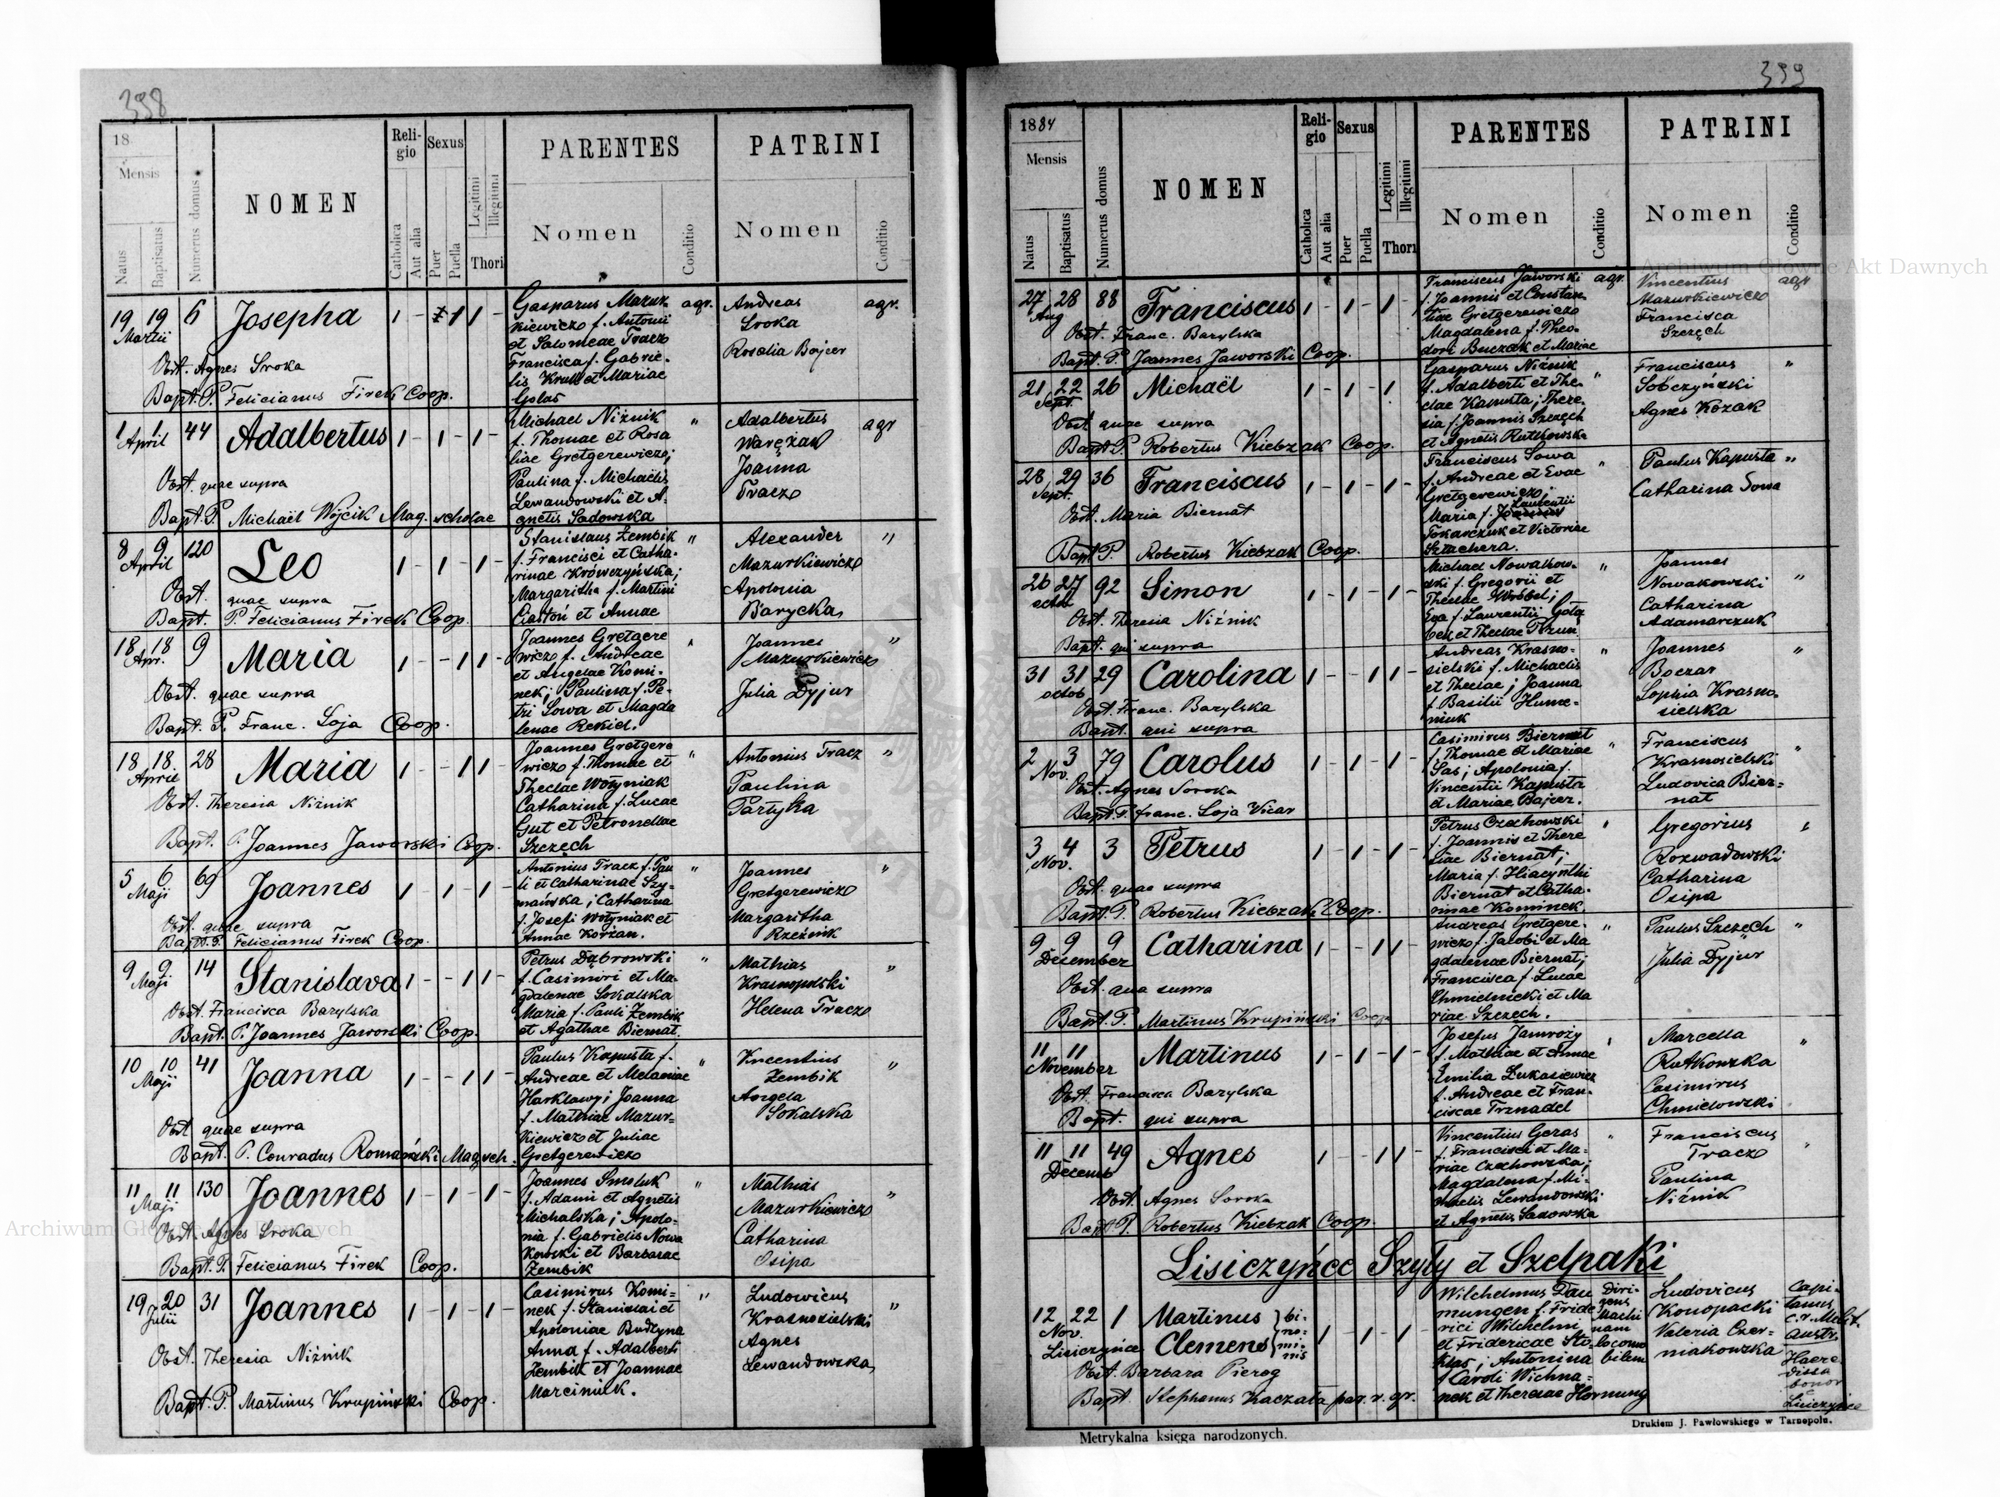 398
18
Mensis
Natus
Baptisatus
Numerus domus
NOMEN
Religio
Catholica
Aut alia
Sexus
Puer
Puella
Legitimi
Illegitimi
Thori
PARENTES
Nomen
Conditio
PATRINI
Nomen
Conditio
19 19 6 Josepha 1 - 1 1 -
Martii
Obst. Agnes Sroka
Bapt. P. Felicianus Firek Coop.
Gasparus Mazur
kiewicz f. Antonii
et Salomeae Tracz
Francisca f. Gabrie-
lis Krull et Mariae
Golas
agr.
Andreas
Sroka
Rosalia Bojcer
agr.
1 1 44 Adalbertus 1 - 1 - 1 -
April
Obst. quae supra
Bapt. P. Michaël Wójcik Mag. scholae
Michael Niżnik
f. Thomae et Rosa
liae Gretgerewicz;
Paulina f. Michaëlis
Lewandowski et A-
gnetis Sadowska
"
Adalbertus
Warężak
Joanna
Tracz
agr
8 9 120 Leo 1 - 1 - 1 -
April
Obst. quae supra
Bapt. P. Felicianus Firek Coop.
Stanislaus Zembik
f. Francisci et Catha-
rinae Krówczyńska;
Margaritha f. Martini
Ciastoń et Annae
"
Alexander
Mazurkiewicz
Apolonia
Barycka,
"
18 18 9 Maria 1 - - 1 1 -
Apr.
Obst. quae supra
Bapt. P. Franc. Soja Coop.
Joannes Gretgere
wicz f. Andreae
et Angelae Komi-
nek; Paulina f. Pe-
tri Sowa et Magda
lenae Rekiel.
"
Joannes
Mazurkiewicz
Julia Dyjur
"
18 18. 28 Maria 1 - - 1 1 -
April
Obst. Theresia Niżnik
Bapt. P. Joannes Jaworski Coop.
Joannes Gretgere
wicz f. Thomae et
Theclae Wołyniak
Catharina f. Lucae
Gut et Petronellae
Szczęch
"
Antonius Tracz
Paulina
Partyka
"
5 6 69 Joannes 1 - 1 - 1 -
Maji
Obst. quae supra
Bapt. P. Felicianus Firek Coop.
Antonius Tracz f. Pau
li et Catharinae Szy-
mańska; Catharina
f. Josefi Wołyniak et
Annae Korżan.
"
Joannes
Gretgerewicz
Margaritha
Rzeźnik
"
9 9 14 Stanislava 1 - - 1 1 -
Maji
Obst. Francisca Barylska
Bapt. P. Joannes Jaworski Coop.
Petrus Dąbrowski
f. Casimiri et Ma-
gdalenae Sokalska
Maria f. Pauli Zembik
et Agathae Biernat.
"
Mathias
Krasnopolski
Helena Tracz
"
10 10 41 Joanna 1 - - 1 1 -
Maji
Obst quae supra
Bapt. P. Conradus Romański Mag sch.
Paulus Kapusta f.
Andreae et Melaniae
Harklawy; Joanna
f. Mathiae Mazur-
kiewicz et Juliae
Gretgerewicz
"
Vincentius
Zembik
Angela
Sokalska
"
11 11 130 Joannes 1 - 1 - 1 -
Maji
Obst. Agnes Sroka
Bapt. P. Felicianus Firek Coop.
Joannes Smoluk
f. Adami et Agnetis
Michalska; Apolo-
nia f. Gabrielis Nowa
kowski et Barbarae
Zembik
"
Mathias
Mazurkiewicz
Catharina
Osipa
"
19 20 31 Joannes 1 - 1 - 1 -
Julii
Obst. Theresia Niżnik
Bapt. P. Martinus Krupiński Coop.
Casimirus Komi-
nek f. Stanislai et
Apoloniae Budzyna
Anna f. Adalberti
Zembik et Joannae
Marciniuk.
"
Ludovicus
Krasnosielski
Agnes
Lewandowska,
"
399
1884
Mensis
Natus
Baptisatus
Numerus domus
NOMEN
Religio
Catholica
Aut alia
Sexus
Puer
Puella
Legitimi
Illegitimi
Thori
PARENTES
Nomen
Conditio
PATRINI
Nomen
Conditio
27 28 88 Franciscus 1 - 1 - 1 -
Aug
Obst. Franc. Barylska
Bapt. P. Joannes Jaworski Coop.
Franciscus Jaworski
f. Joannis et Constan
tiae Gretgerewicz
Magdalena f. Theo-
dori Buczak et Mariae
agr.
Vincentius
Mazurkiewicz
Francisca
Szczęch
agr
21 22 26 Michaël 1 - 1 - 1
Sept.
Obst quae supra
Bapt. P Robertus Kiebzak Coop.
Gasparus Niżnik
f. Adalberti et The-
clae Kapusta; There-
sia f. Joannis Szczęch
et Agnetis Rutkowska
"
Franciscus
Sobczyński
Agnes Kozak
"
28 29 36 Franciscus 1 - 1 - 1 -
Sept.
Obst. Maria Biernat
Bapt P. Robertus Kiebzak Coop.
Franciscus Sowa
f. Andreae et Evae
Gretgerewicz;
Maria f. Laurentii
Tokarczuk et Victoriae
Sztachera.
"
Paulus Kapusta
Catharina Sowa
"
26 27 92 Simon 1 - 1 - 1 -
octob
Obst. Theresia Niżnik
Bapt. qui supra
Michael Nowakow-
ski f. Gregorii et
Theclae Wróbel;
Eva f. Laurentii Gołę
bek et Theclae
"
Joannes
Nowakowski
Catharina
Adamarczuk
"
31 31 29 Carolina 1 - - 1 1 -
octob
Obst. Franc. Barylska
Bapt. qui supra
Andreas Krasno-
sielski f. Michaelis
et Theclae; Joanna
f. Basilii Hume-
niuk
"
Joannes
Boczar
Sophia Krasno-
sielska
"
2 3 79 Carolus 1 - 1 - 1 -
Nov.
Obst. Agnes Sroka
Bapt. P. Franc. Soja Vicar
Casimirus Biernat
f. Thomae et Mariae
Sas; Apolonia f.
Vincentii Kapusta
et Mariae Bajcer.
"
Franciscus
Krasnosielski
Ludovica Bier-
nat
"
3 4 3 Petrus 1 - 1 - 1 -
Nov.
Obst. quae supra
Bapt. P. Robertus Kiebzak Coop.
Petrus Czechowski
f. Joannis et There
siae Biernat;
Maria f. Hiacynthi
Biernat et Catha-
rinae Kominek.
"
Gregorius
Rozwadowski
Catharina
Osipa
"
9 9 9 Catharina 1 - - 1 1 -
December
Obst. qua supra
Bapt P. Martinus Krupiński Coop
Andreas Gretgere-
wicz f. Jacobi et Ma
gdalenae Biernat;
Francisca f. Lucae
Chmielnicki et Ma
riae Szczęch.
"
Paulus Szczęch
Julia Dyjur
"
11 11 Martinus 1 - 1 - 1 -
November
Obst. Francisca Barylska
Bapt. qui supra
Josefus Jamroży
f. Mathiae et Annae
Emilia Łukasiewicz
f. Andreae et Fran-
ciscae Trznadel
"
Marcella
Rutkowska
Casimirus
Chmielowski
"
11 11 49 Agnes 1 - - 1 1 -
Decemb
Obst. Agnes Sroka
Bapt P. Robertus Kiebzak Coop.
Vincentius Geras
f. Francisci et Ma-
riae Czechowska;
Magdalena f. Mi-
chaelis Lewandowski
et Agnetis Sadowska
"
Franciscus
Tracz
Paulina
Niżnik
"
Lisiczyńce Szyły et Szelpaki
12 22 1 Martinus } bi-
Nov. Clemens } no-mi-nis 1 - 1 - 1 -
Lisiczyńce
Obst. Barbara Pierog
Bapt Stephanus Kaczała par. r. gr.
Wilchelmus Dau
mungen f. Fride
rici Wilchelmi
et Fridericae Sto-
klas; Antonina
f Caroli Wichna-
nek et Theresae Hornung
Diri-
gens
Machi
nam
locomo
bilem
Ludovicus
Konopacki
Valeria Czer-
niakowska
Capi-
taneus
c.r. Milit.
austr.
Haere
dissa
bonor
Lisiczyńce
Metrykalna księga narodzonych.
Drukiem J. Pawłowskiego w Tarnopolu.
Archiwum Główne Akt Dawnych
Archiwum Główne Akt Dawnych